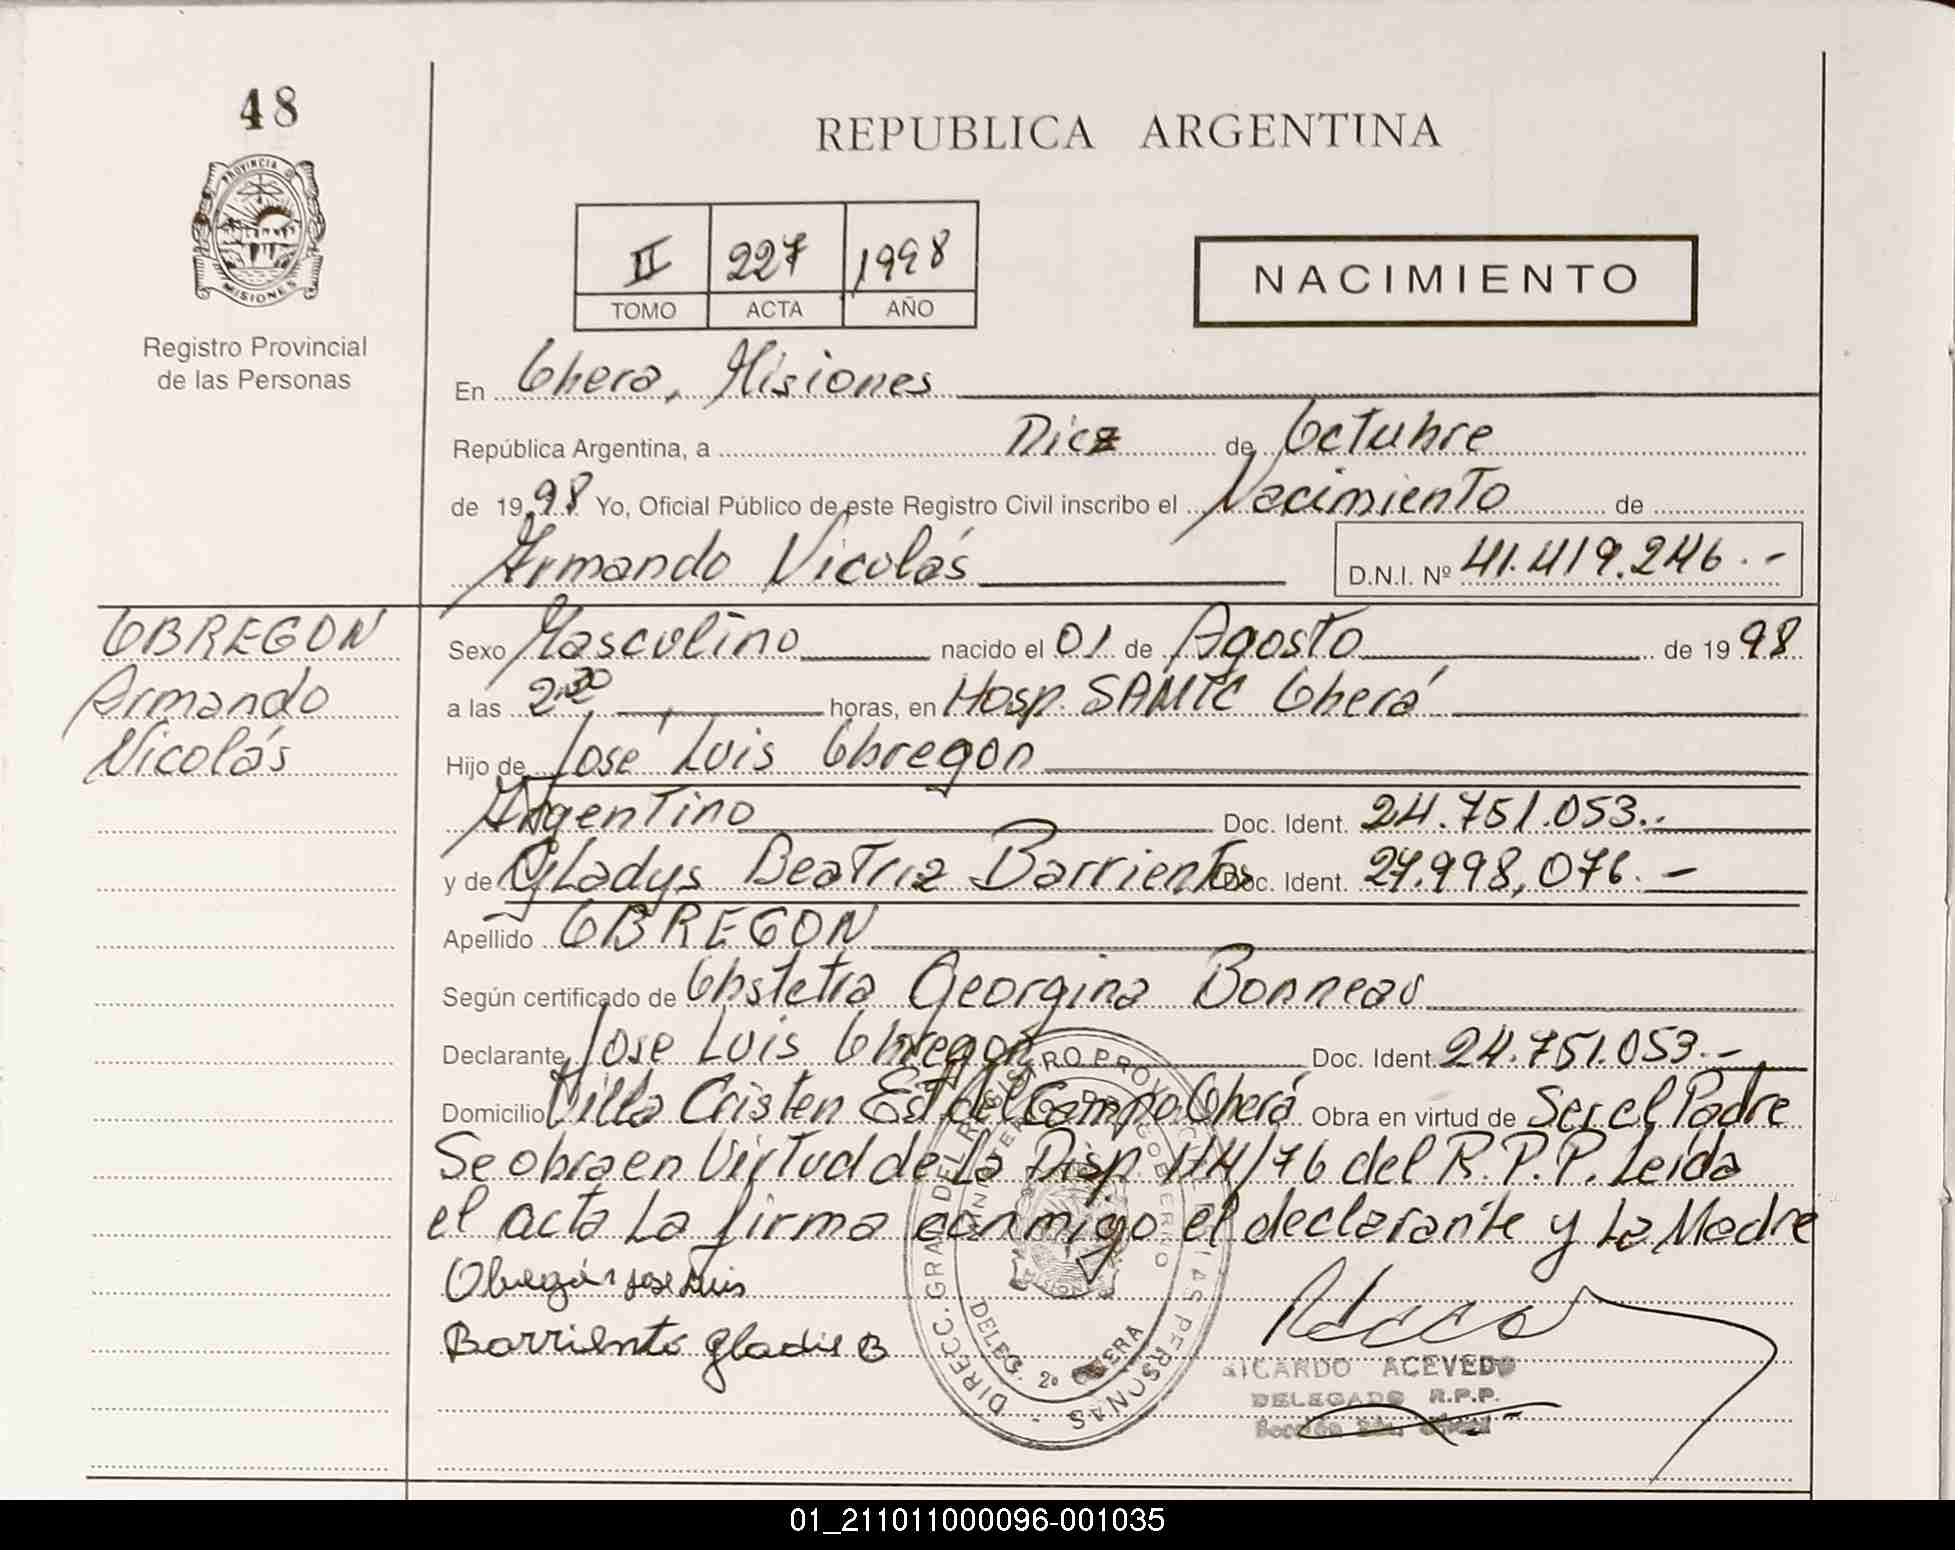 48
PROVINCIA D
MISIONES
Registro Provincial
de las Personas
REPUBLICA ARGENTINA
II 227 1998
TOMO ACTA AÑO
NACIMIENTO
En Oberá, Misiones
República Argentina, a Diez de Octubre
de 1998 Yo, Oficial Público de este Registro Civil inscribo el Nacimiento de
Armando Nicolás D.N.I. Nº 41.419.246.-
OBREGON
Armando
Nicolás
Sexo Masculino nacido el 01 de Agosto de 1998
a las 2:30 horas, en Hosp. SAMIC Oberá
Hijo de José Luis Obregon
Argentino Doc. Ident. 24.751.053.-
y de Gladys Beatriz Barrientos Doc. Ident. 27.998,076.-
Apellido OBREGON
Según certificado de Obstetra Georgina Bonneau
Declarante Jose Luis Obregon Doc. Ident. 24.751.053.-
Domicilio Villa Cristen Est del Campo Oberá Obra en virtud de Ser el Padre
Se obra en Virtud de la Disp. 114/76 del R.P.P. Leída
el acta La firma conmigo el declarante y La Madre
Obregón jose luis
Barriento gladis B
DIRECC. GRAL DEL REGISTRO PROVINCIAL DE LAS PERSONAS
DELEG. 2º OBERA
RICARDO ACEVEDO
DELEGADO R.P.P.
01_211011000096-001035